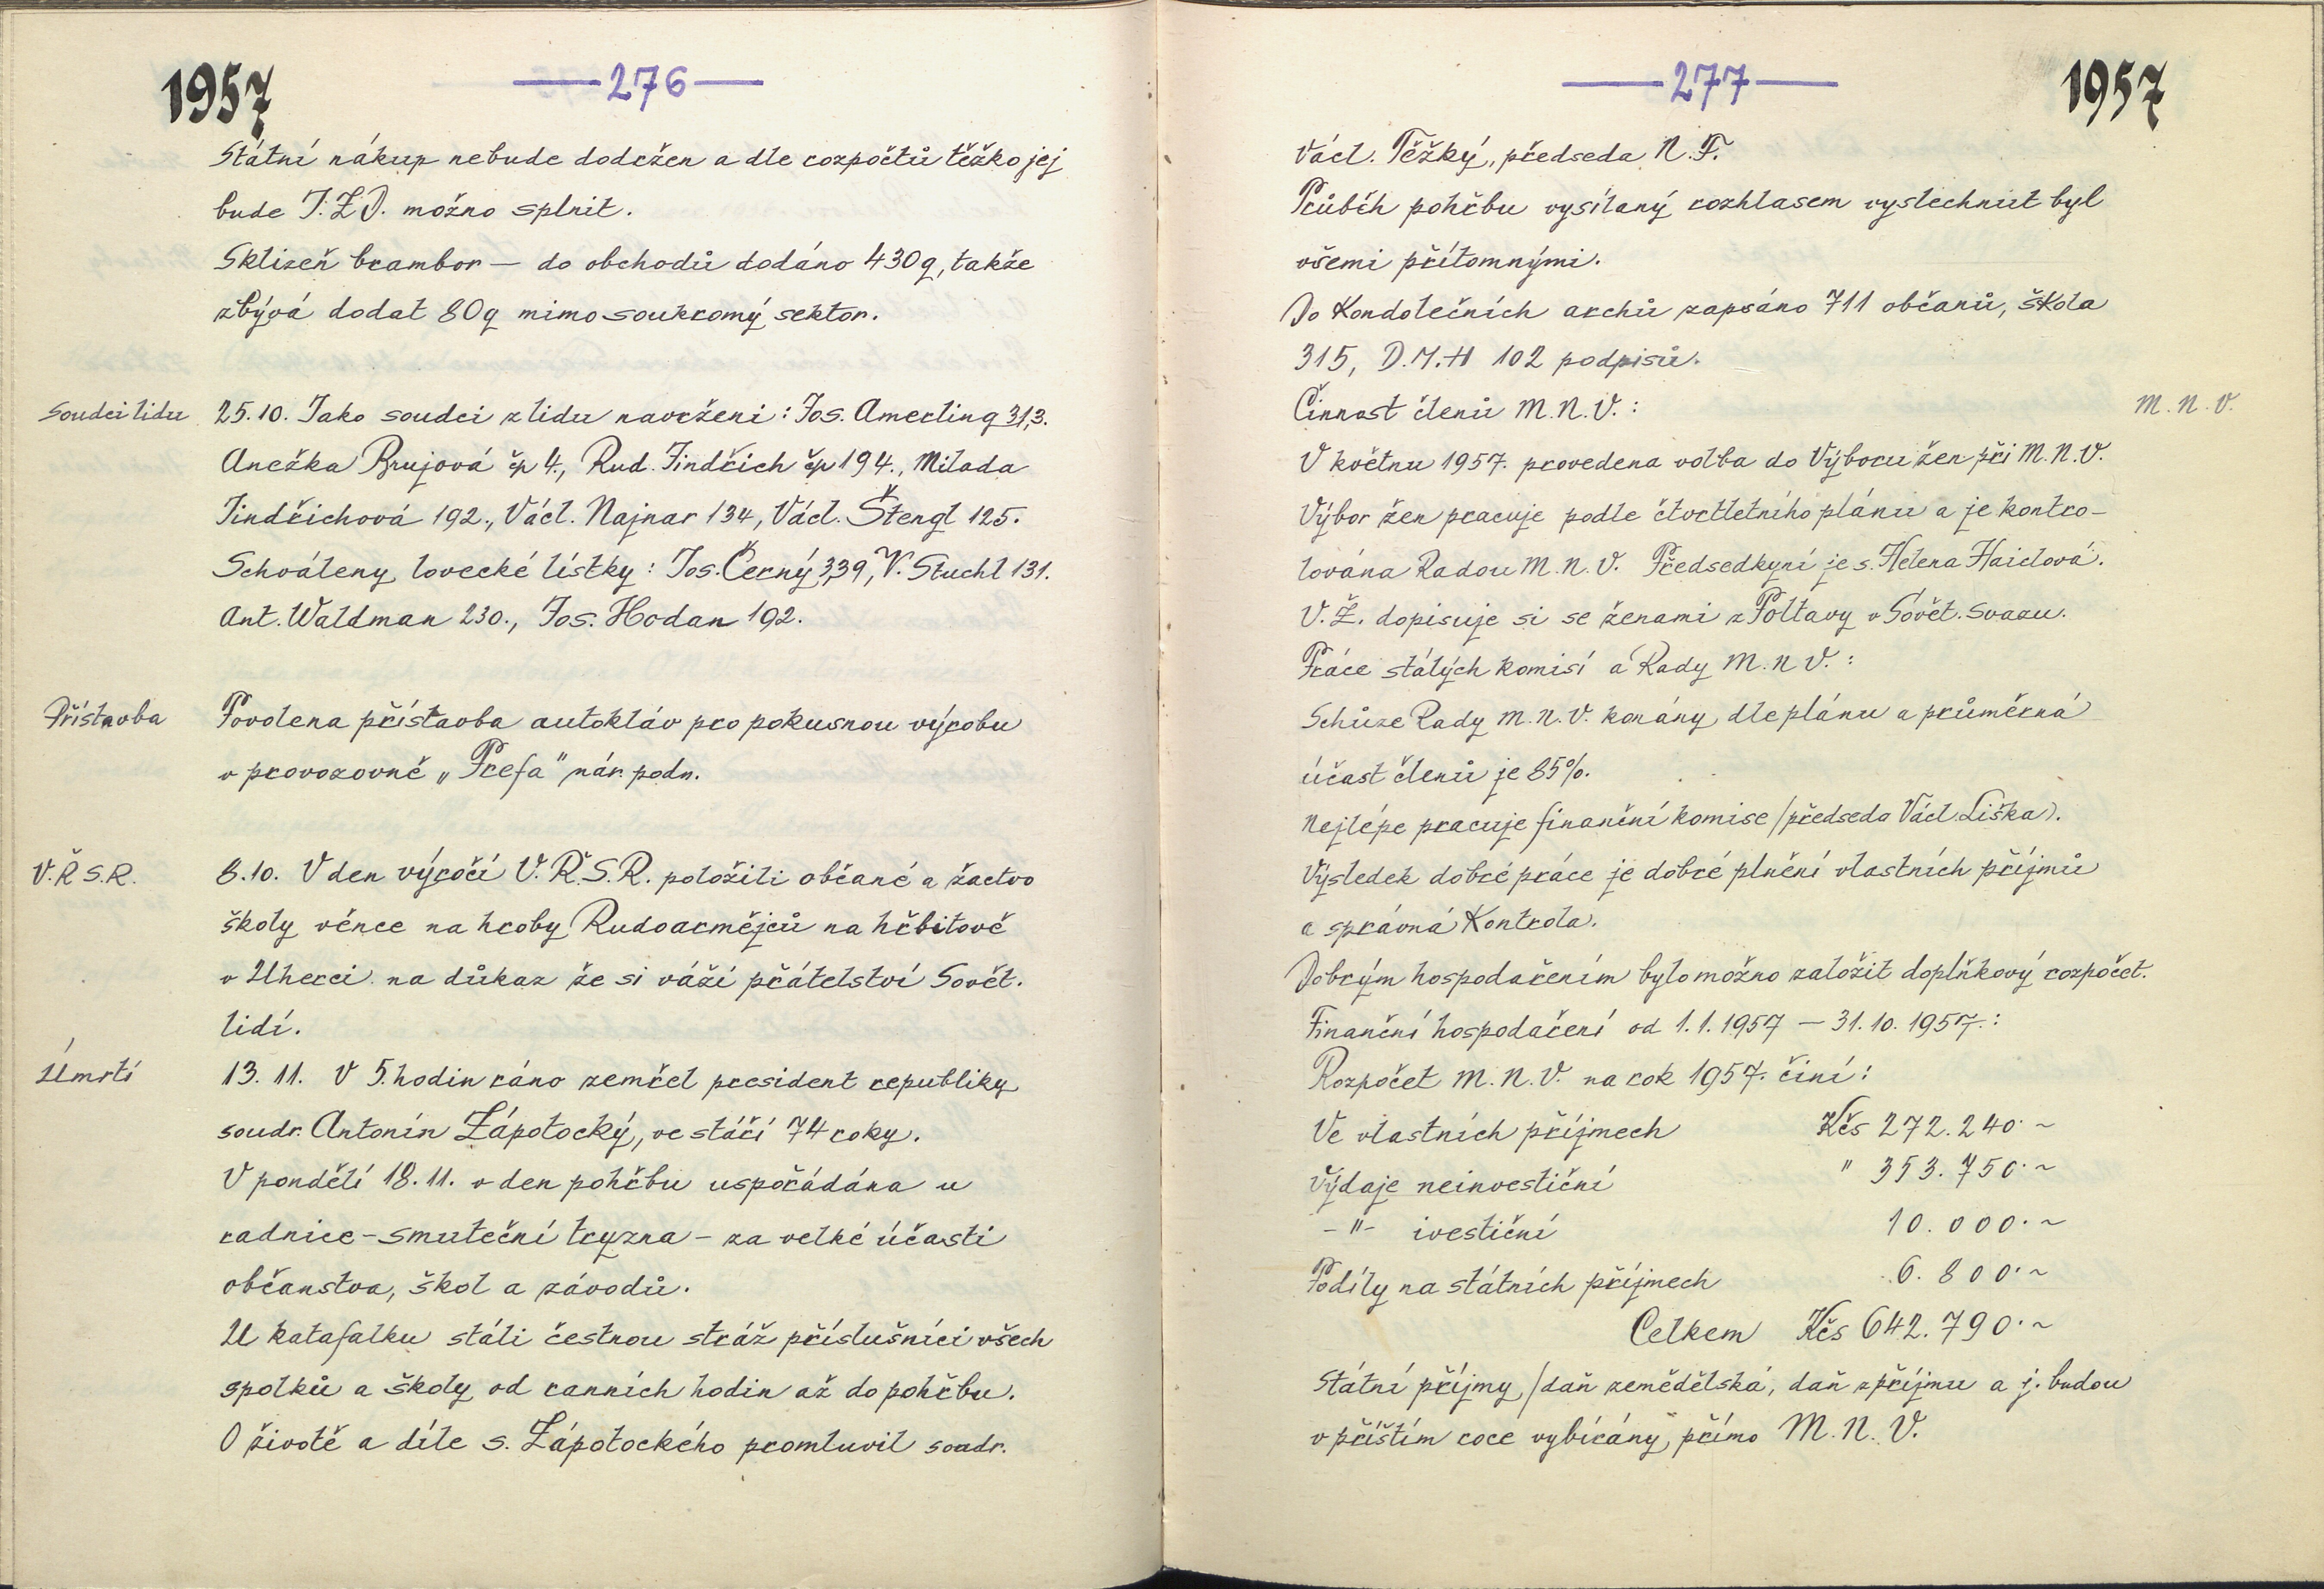 1957
—276—
Státní nákup nebude dodržen a dle rozpočtů těžko jej
bude J.Z.D. možno splnit.
Sklizeň brambor — do obchodů dodáno 430q, takže
zbývá dodat 80q mimo soukromý sektor.
Soudci lidu
25.10. Jako soudci z lidu navrženi: Jos. Amerling 313.
Anežka Brujová čp 4., Rud. Jindřich čp 194., Milada
Jindřichová 192., Václ. Najnar 134, Václ. Štengl 125.
Schváleny lovecké lístky: Jos. Černý 339, V. Stuchl 131.
Ant. Waldman 230., Jos. Hodan 192.
Přístavba
Povolena přístavba autokláv pro pokusnou výrobu
v provozovně „Prefa" nár. podn.
V.Ř.S.R.
8.10. V den výročí V.Ř.S.R. položili občané a žactvo
školy věnce na hroby Rudoarmějců na hřbitově
v Uherci na důkaz že si váží přátelství Sovět.
lidí.
Úmrtí
13. 11. V 5. hodin ráno zemřel president republiky
soudr. Antonín Zápotocký, ve stáří 74 roky.
V pondělí 18. 11. v den pohřbu uspořádána u
radnice - smuteční tryzna - za velké účasti
občanstva, škol a závodů.
U katafalku stáli čestnou stráž příslušníci všech
spolků a školy od ranních hodin až do pohřbu.
O životě a díle s. Zápotockého promluvil soudr.
—277—
1957
Václ. Těžký, předseda N.F.
Průběh pohřbu vysílaný rozhlasem vyslechnut byl
všemi přítomnými.
Do Kondolečních archů zapsáno 711 občanů, škola
315, D.M.H 102 podpisů.
Činnost členů M.N.V.:
M.N.V.
V květnu 1957. provedena volba do Výboru žen při M.N.V.
Výbor žen pracuje podle čtvrtletního plánu a je kontro-
lována Radou M.N.V. Předsedkyní je s. Helena Haidlová.
V.Ž. dopisuje si se ženami z Poltavy v Sovět. svazu.
Práce stálých komisí a Rady M.N V.:
Schůze Rady M.N.V. konány dle plánu a průměrná
účast členů je 85%.
Nejlépe pracuje finanční komise /předseda Václ. Liška).
Výsledek dobré práce je dobré plnění vlastních příjmů
a správná Kontrola.
Dobrým hospodařením bylo možno založit doplňkový rozpočet.
Finanční hospodaření od 1.1.1957 — 31.10.1957.:
Rozpočet M.N.V. na rok 1957. činí:
Ve vlastních příjmech Kčs 272.240·~
Výdaje neinvestiční " 353.750·~
-"- ivestiční 10.000·~
Podíly na státních příjmech 6.800·~
Celkem Kčs 642.790·~
Státní příjmy /daň zemědělská, daň z příjmu a j. budou
v příštím roce vybírány přímo M.N.V.